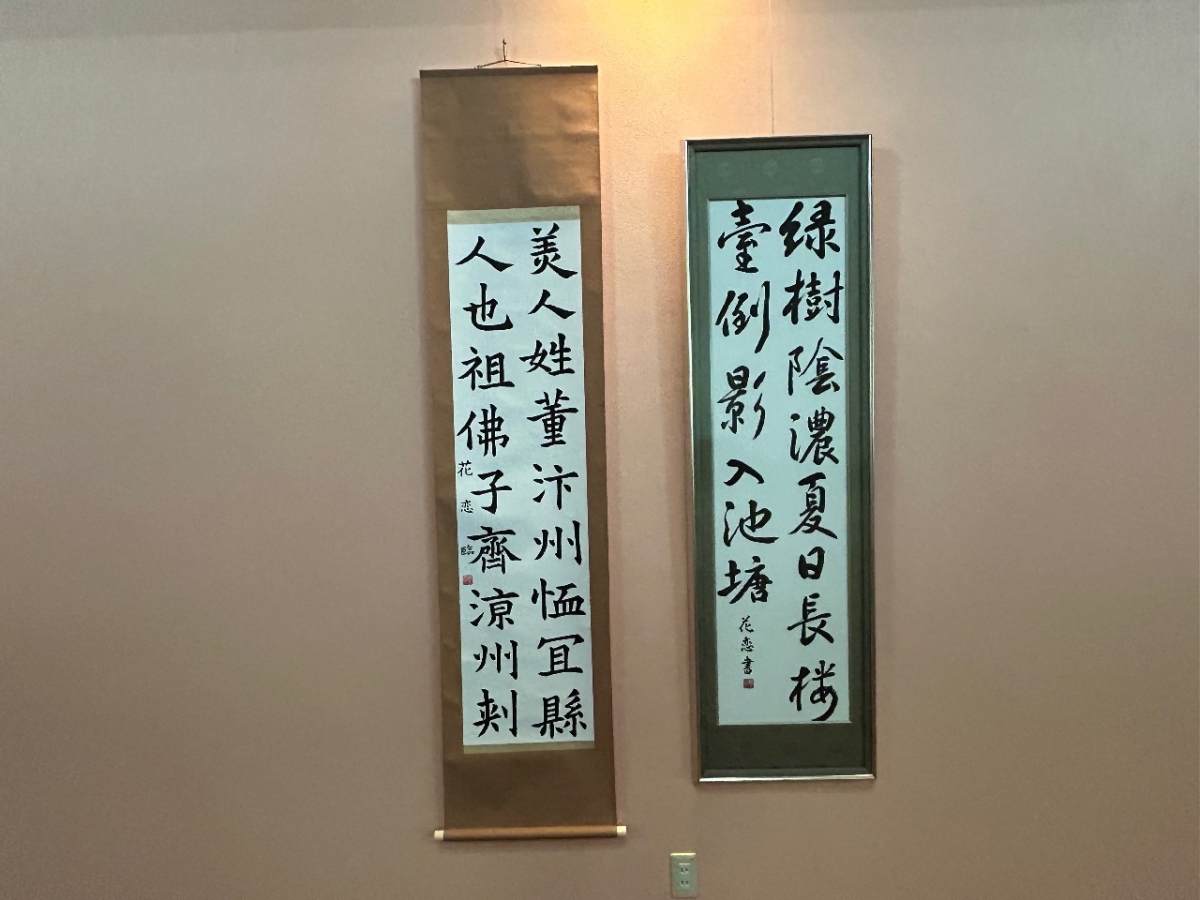 美人姓董汴州恤冝縣
人也祖佛子齊涼州刺
花恋臨
绿樹陰濃夏日長楼
臺倒影入池塘
花恋書